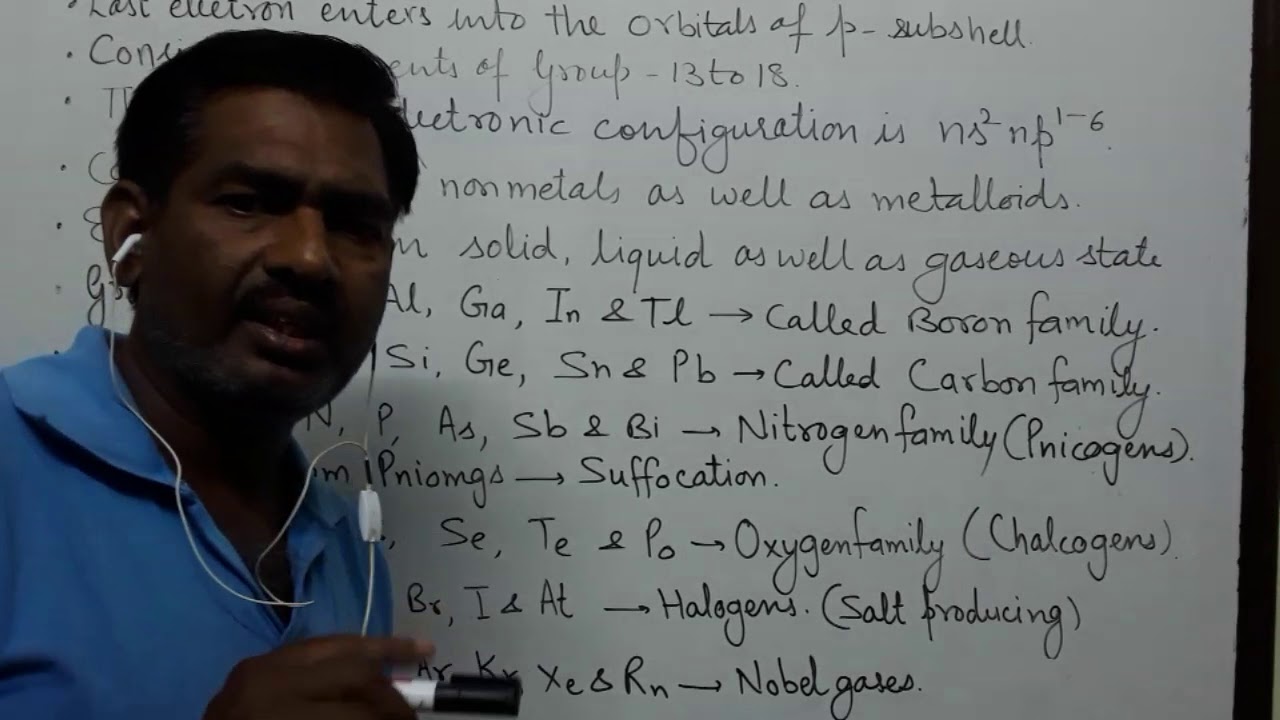 · Last electron enters into the orbitals of p-subshell.
· of Group-13 to 18.
· configuration is ns² np¹⁻⁶.
· nonmetals as well as metalloids.
· solid, liquid as well as gaseous state
· Al, Ga, In & Tl → Called Boron family.
Si, Ge, Sn & Pb → Called Carbon family.
N, P, As, Sb & Bi → Nitrogen family (Pnicogens).
Pniomgs → Suffocation.
Se, Te & Po → Oxygen family (Chalcogens).
Br, I & At → Halogens. (Salt producing)
Ar, Kr, Xe & Rn → Nobel gases.